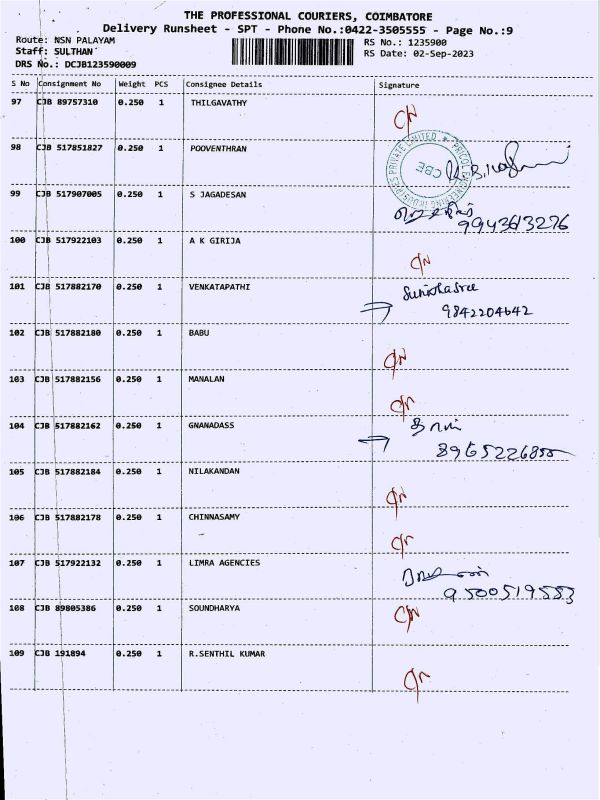 THE PROFESSIONAL COURIERS, COIMBATORE
Delivery Runsheet - SPT - Phone No.:0422-3505555 - Page No.:9
Route: NSN PALAYAM RS No.: 1235900
Staff: SULTHAN RS Date: 02-Sep-2023
DRS No.: DCJB123590009
S No Consignment No Weight PCS Consignee Details Signature
97 CJB 89757310 0.250 1 THILGAVATHY
C/N
98 CJB 517851827 0.250 1 POOVENTHRAN
PRICOL ENGINEERING INDUSTRIES PRIVATE LIMITED
CBE
99 CJB 517907005 0.250 1 S JAGADESAN
9943613276
100 CJB 517922103 0.250 1 A K GIRIJA
C/N
101 CJB 517882170 0.250 1 VENKATAPATHI
9842204642
102 CJB 517882180 0.250 1 BABU
C/N
103 CJB 517882156 0.250 1 MANALAN
C/N
104 CJB 517882162 0.250 1 GNANADASS
105 CJB 517882184 0.250 1 NILAKANDAN
C/N
106 CJB 517882178 0.250 1 CHINNASAMY
C/N
107 CJB 517922132 0.250 1 LIMRA AGENCIES
9500519553
108 CJB 89805386 0.250 1 SOUNDHARYA
C/N
109 CJB 191894 0.250 1 R.SENTHIL KUMAR
C/N